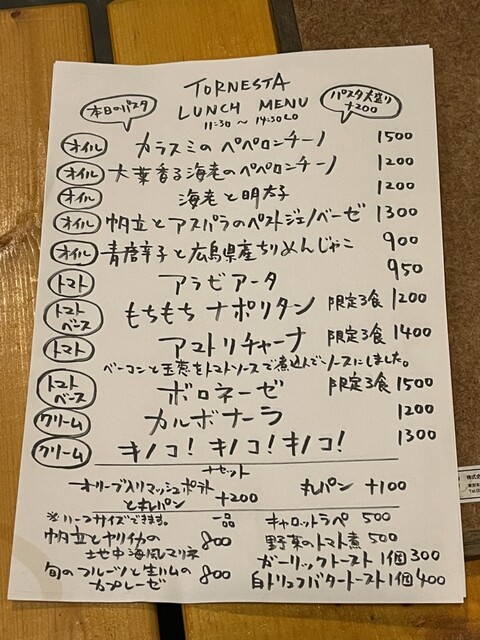 TORNESTA
LUNCH MENU
11:30 〜 14:30LO
本日のパスタ
パスタ大盛り
+200
オイル カラスミのペペロンチーノ 1500
オイル 大葉香る海老のペペロンチーノ 1200
オイル 海老と明太子 1200
オイル 帆立とアスパラのペストジェノベーゼ 1300
オイル 青唐辛子と広島県産ちりめんじゃこ 900
トマト アラビアータ 950
トマトベース もちもちナポリタン 限定3食 1200
トマト アマトリチャーナ 限定3食 1400
ベーコンと玉葱をトマトソースで煮込んでソースにしました。
トマトベース ボロネーゼ 限定3食 1500
クリーム カルボナーラ 1200
クリーム キノコ!キノコ!キノコ! 1300
+セット
オリーブ入りマッシュポテト
と丸パン +200 丸パン +100
※ハーフサイズできます。 一品
帆立とヤリイカの
地中海風マリネ 800
旬のフルーツと生ハムの
カプレーゼ 800
キャロットラペ 500
野菜のトマト煮 500
ガーリックトースト 1個300
白トリュフバタートースト1個400